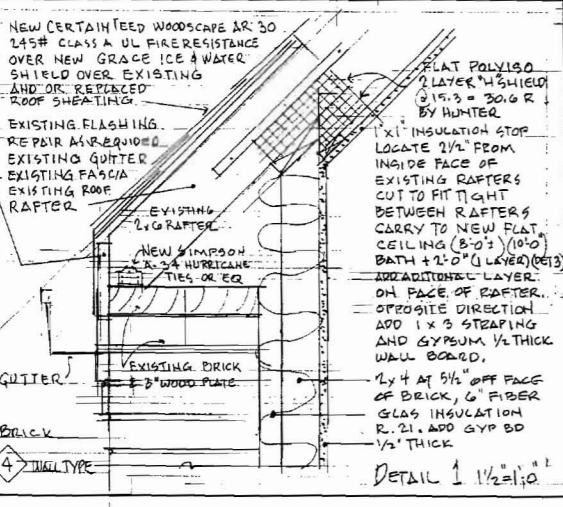 NEW CERTAINTEED WOODSCAPE AR 30
245# CLASS A UL FIRE RESISTANCE
OVER NEW GRACE ICE & WATER
SHIELD OVER EXISTING
AND OR REPLACED
ROOF SHEATING
EXISTING FLASHING
REPAIR AS REQUIDED
EXISTING GUTTER
EXISTING FASCIA
EXISTING ROOF
RAFTER
EXISTING
2x6 RAFTER
NEW SIMPSON
A-34 HURRICANE
TIES OR EQ
EXISTING BRICK
& 3" WOOD PLATE
GUTTER
BRICK
4 WALL TYPE
FLAT POLYISO
2 LAYER "H" SHIELD
@ 15.3 = 30.6 R
BY HUNTER
1"x1" INSULATION STOP
LOCATE 2 1/2" FROM
INSIDE FACE OF
EXISTING RAFTERS
CUT TO FIT TIGHT
BETWEEN RAFTERS
CARRY TO NEW FLAT
CEILING (8'-0"±) (10'-0)
BATH + 2'-0" (1 LAYER) (DET 3)
ADD ADITIONAL LAYER
ON FACE OF RAFTER.
OPPOSITE DIRECTION
ADD 1 x 3 STRAPING
AND GYPSUM 1/2 THICK
WALL BOARD.
2x4 AT 5 1/2" OFF FACE
OF BRICK, 6" FIBER
GLAS INSULATION
R.21. ADD GYP BD
1/2" THICK
DETAIL 1 1 1/2"=1'-0"